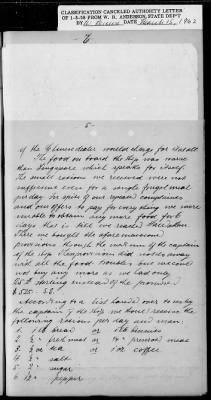 CLASSIFICATION CANCELED AUTHORITY LETTER
OF 1-8-58 FROM W. B. ANDERSON, STATE DEP'T
BY DATE March 15, 1962
5-
of the Chinese dealer would charge for
The food on board the ship was worse
than Singapore which speaks for itself.
The small rations we received were not
sufficient even for a single frugal meal
per day. In spite of our repeated complaints
and our offers to pay for everything we were
unable to obtain any more food for 6
days that is till we reached
There we bought the above mentioned
provisions through the medium of the captain
of the ship. These provisions did not do away
with all the food trouble, but we could
not buy any more as we had only
25 sterling instead of the promised
According to a list handed over to us by
the captain of the ship we have to receive the
following rations per day and man:
1 1 lb bread or 1 lb biscuits
2 fresh meat or preserved meat
3 tea or 1 oz coffee
4 salt
5 sugar
6 pepper